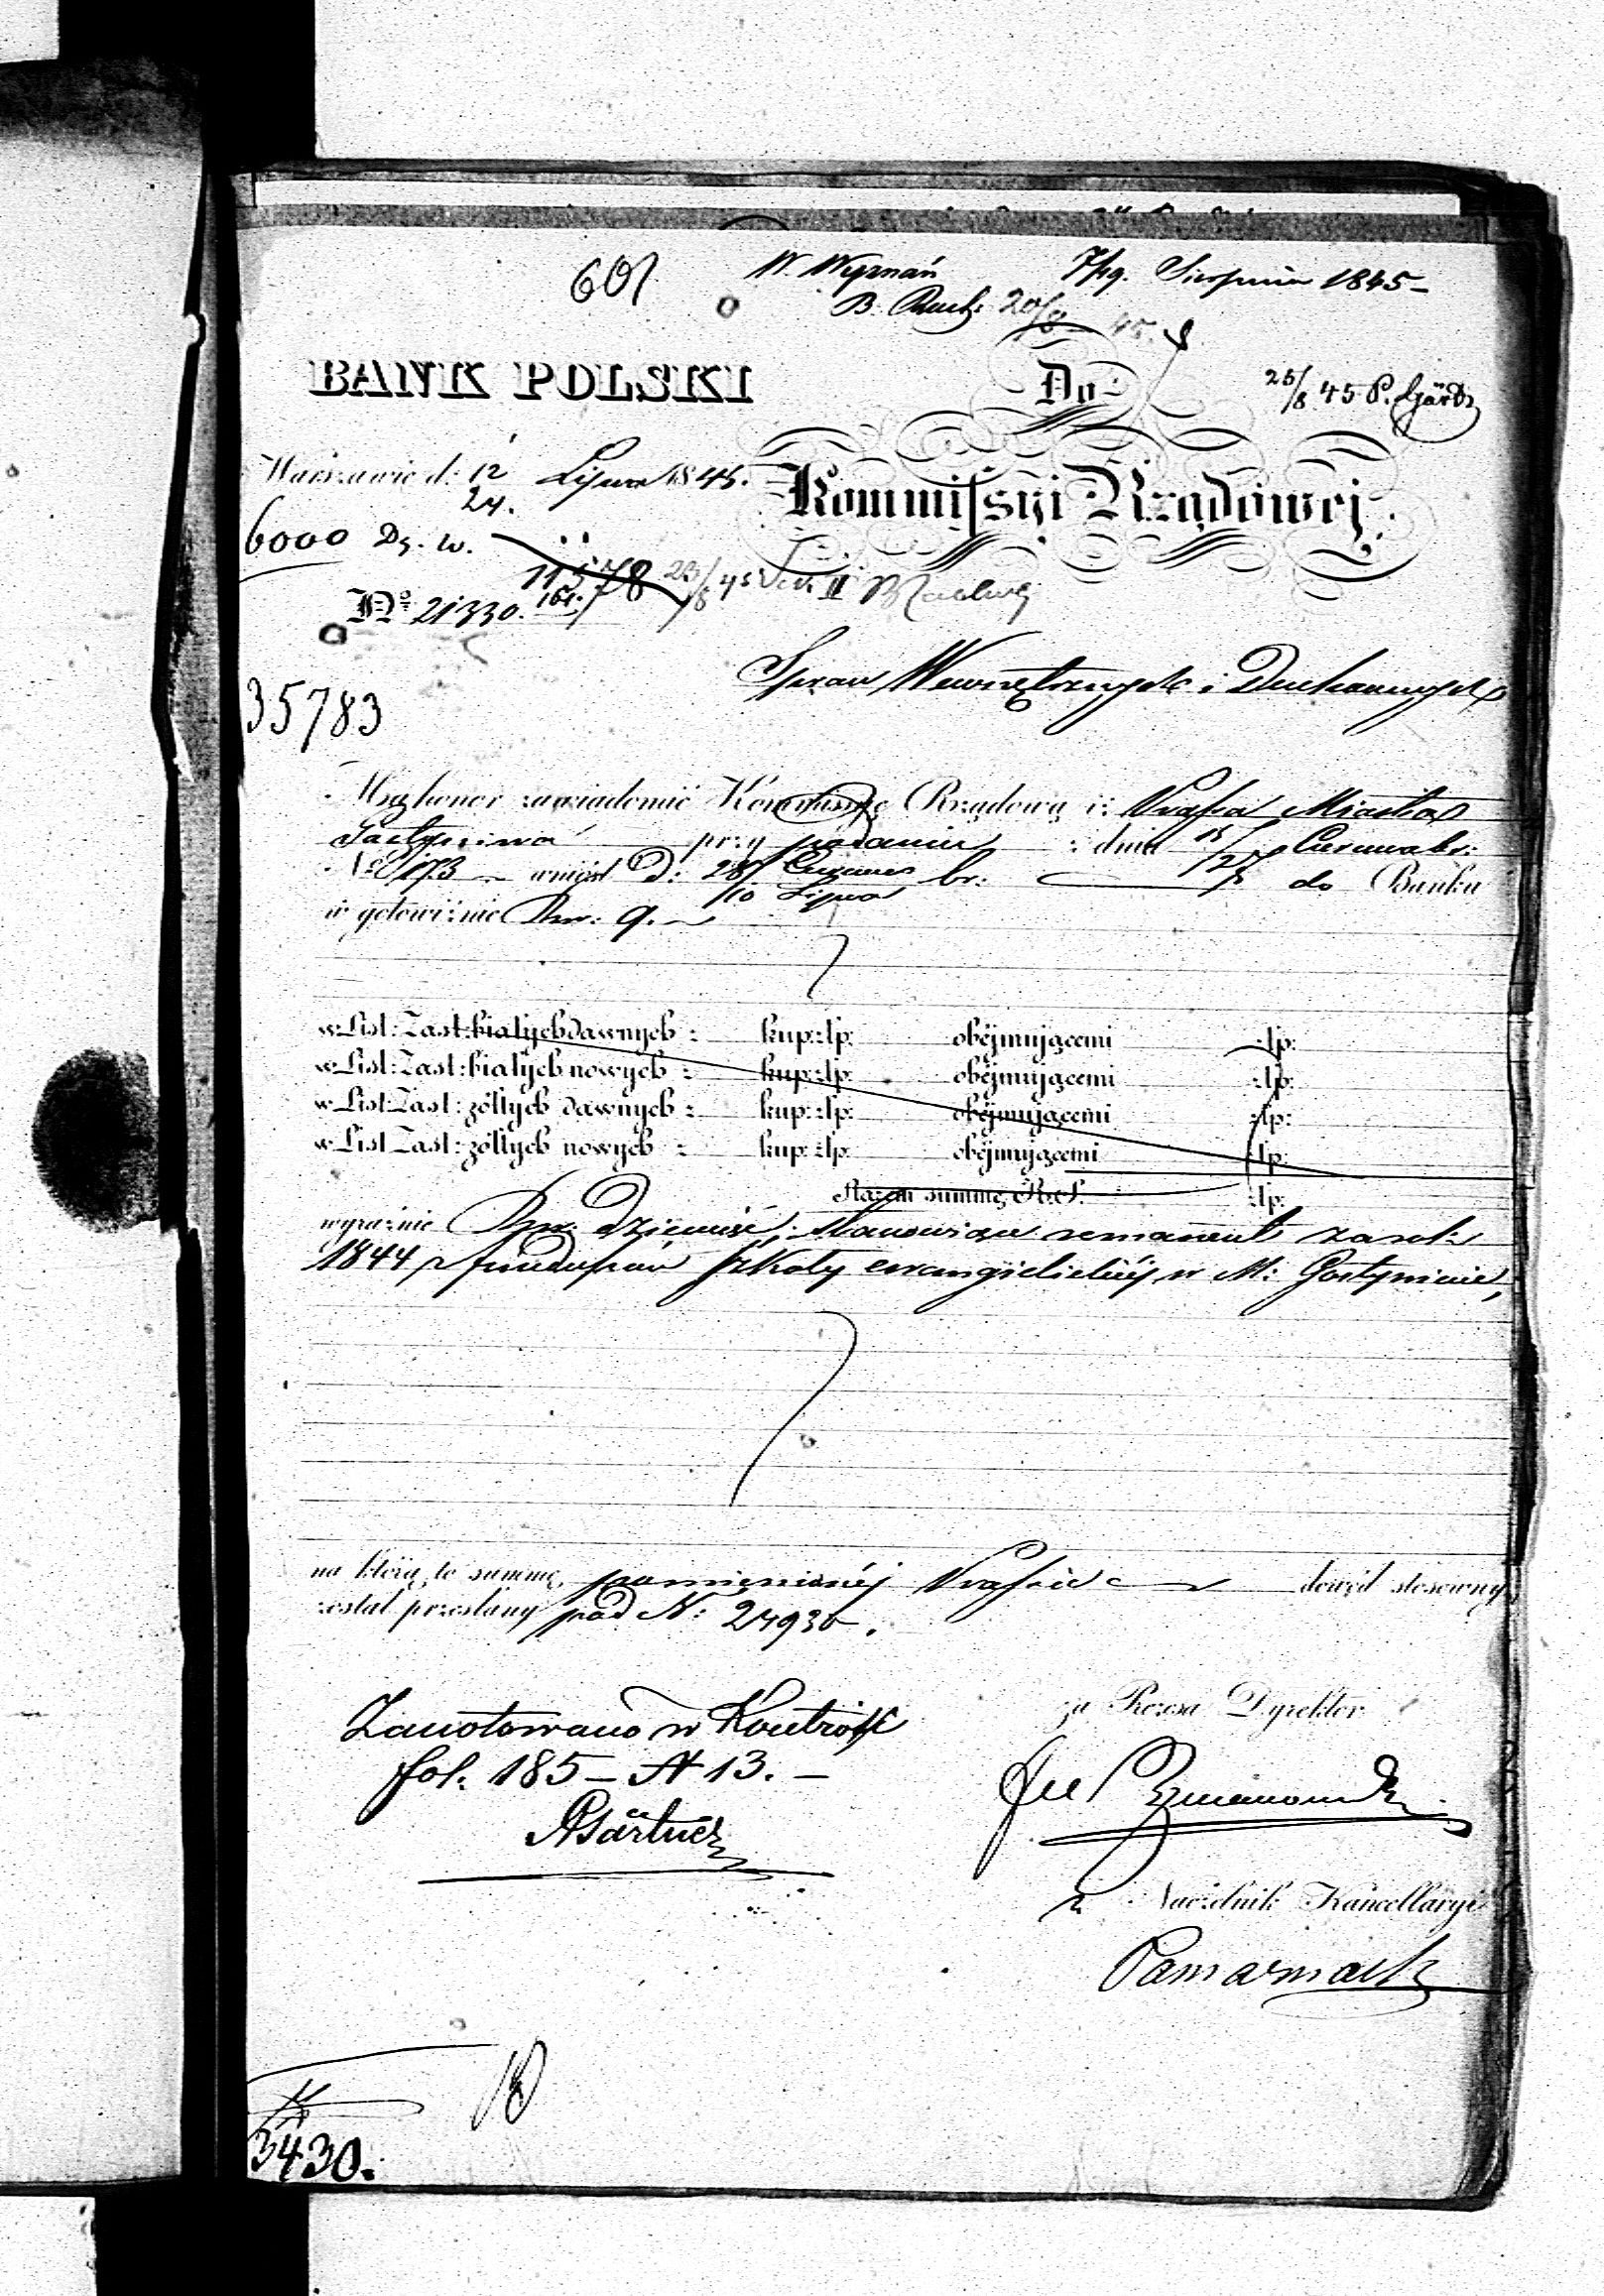 601
W. Wyznań 7/19. Sierpnia 1845 –
B. Rach: 20/8 45.
BANK POLSKI
Do
25/8 45 P.
Warszawie d: 12/24. Lipca 1845.
Kommissyi Rządowej
6000 Dz. w.
11578 23/8 45 II
Nº 21330.
Spraw Wewnętrznych i Duchownych
35783
Ma honor zawiadomić Kommissyę Rządową iż Urząd Miasta
Gostynina przy podaniu z dnia 15/27 Czerwca br:
Nº 173 wniósł d: 28 Czerwca/10 Lipca br: do Banku
w gotowiźnie Rsr: 9.
w List: Zast: białych dawnych : kup: złp: obejmującemi złp:
w List: Zast: białych nowych : kup: złp: obejmującemi złp:
w List: Zast: żółtych dawnych : kup: złp: obejmującemi złp:
w List: Zast: żółtych nowych : kup: złp: obejmującemi złp:
Razem summę R.S. złp:
wyraźnie Rsr: dziewięć, stanowiące remanent za rok
1844 z funduszów szkoły ewangielickiéj w M: Gostyninie,
na którą to summę, pomienionéj dowód stosowny
został przesłany pod N:
Zanotowano w Kontroli
fol. 185 – N 13. –
za Prezesa Dyrektor
Naczelnik Kancellaryi
3430.